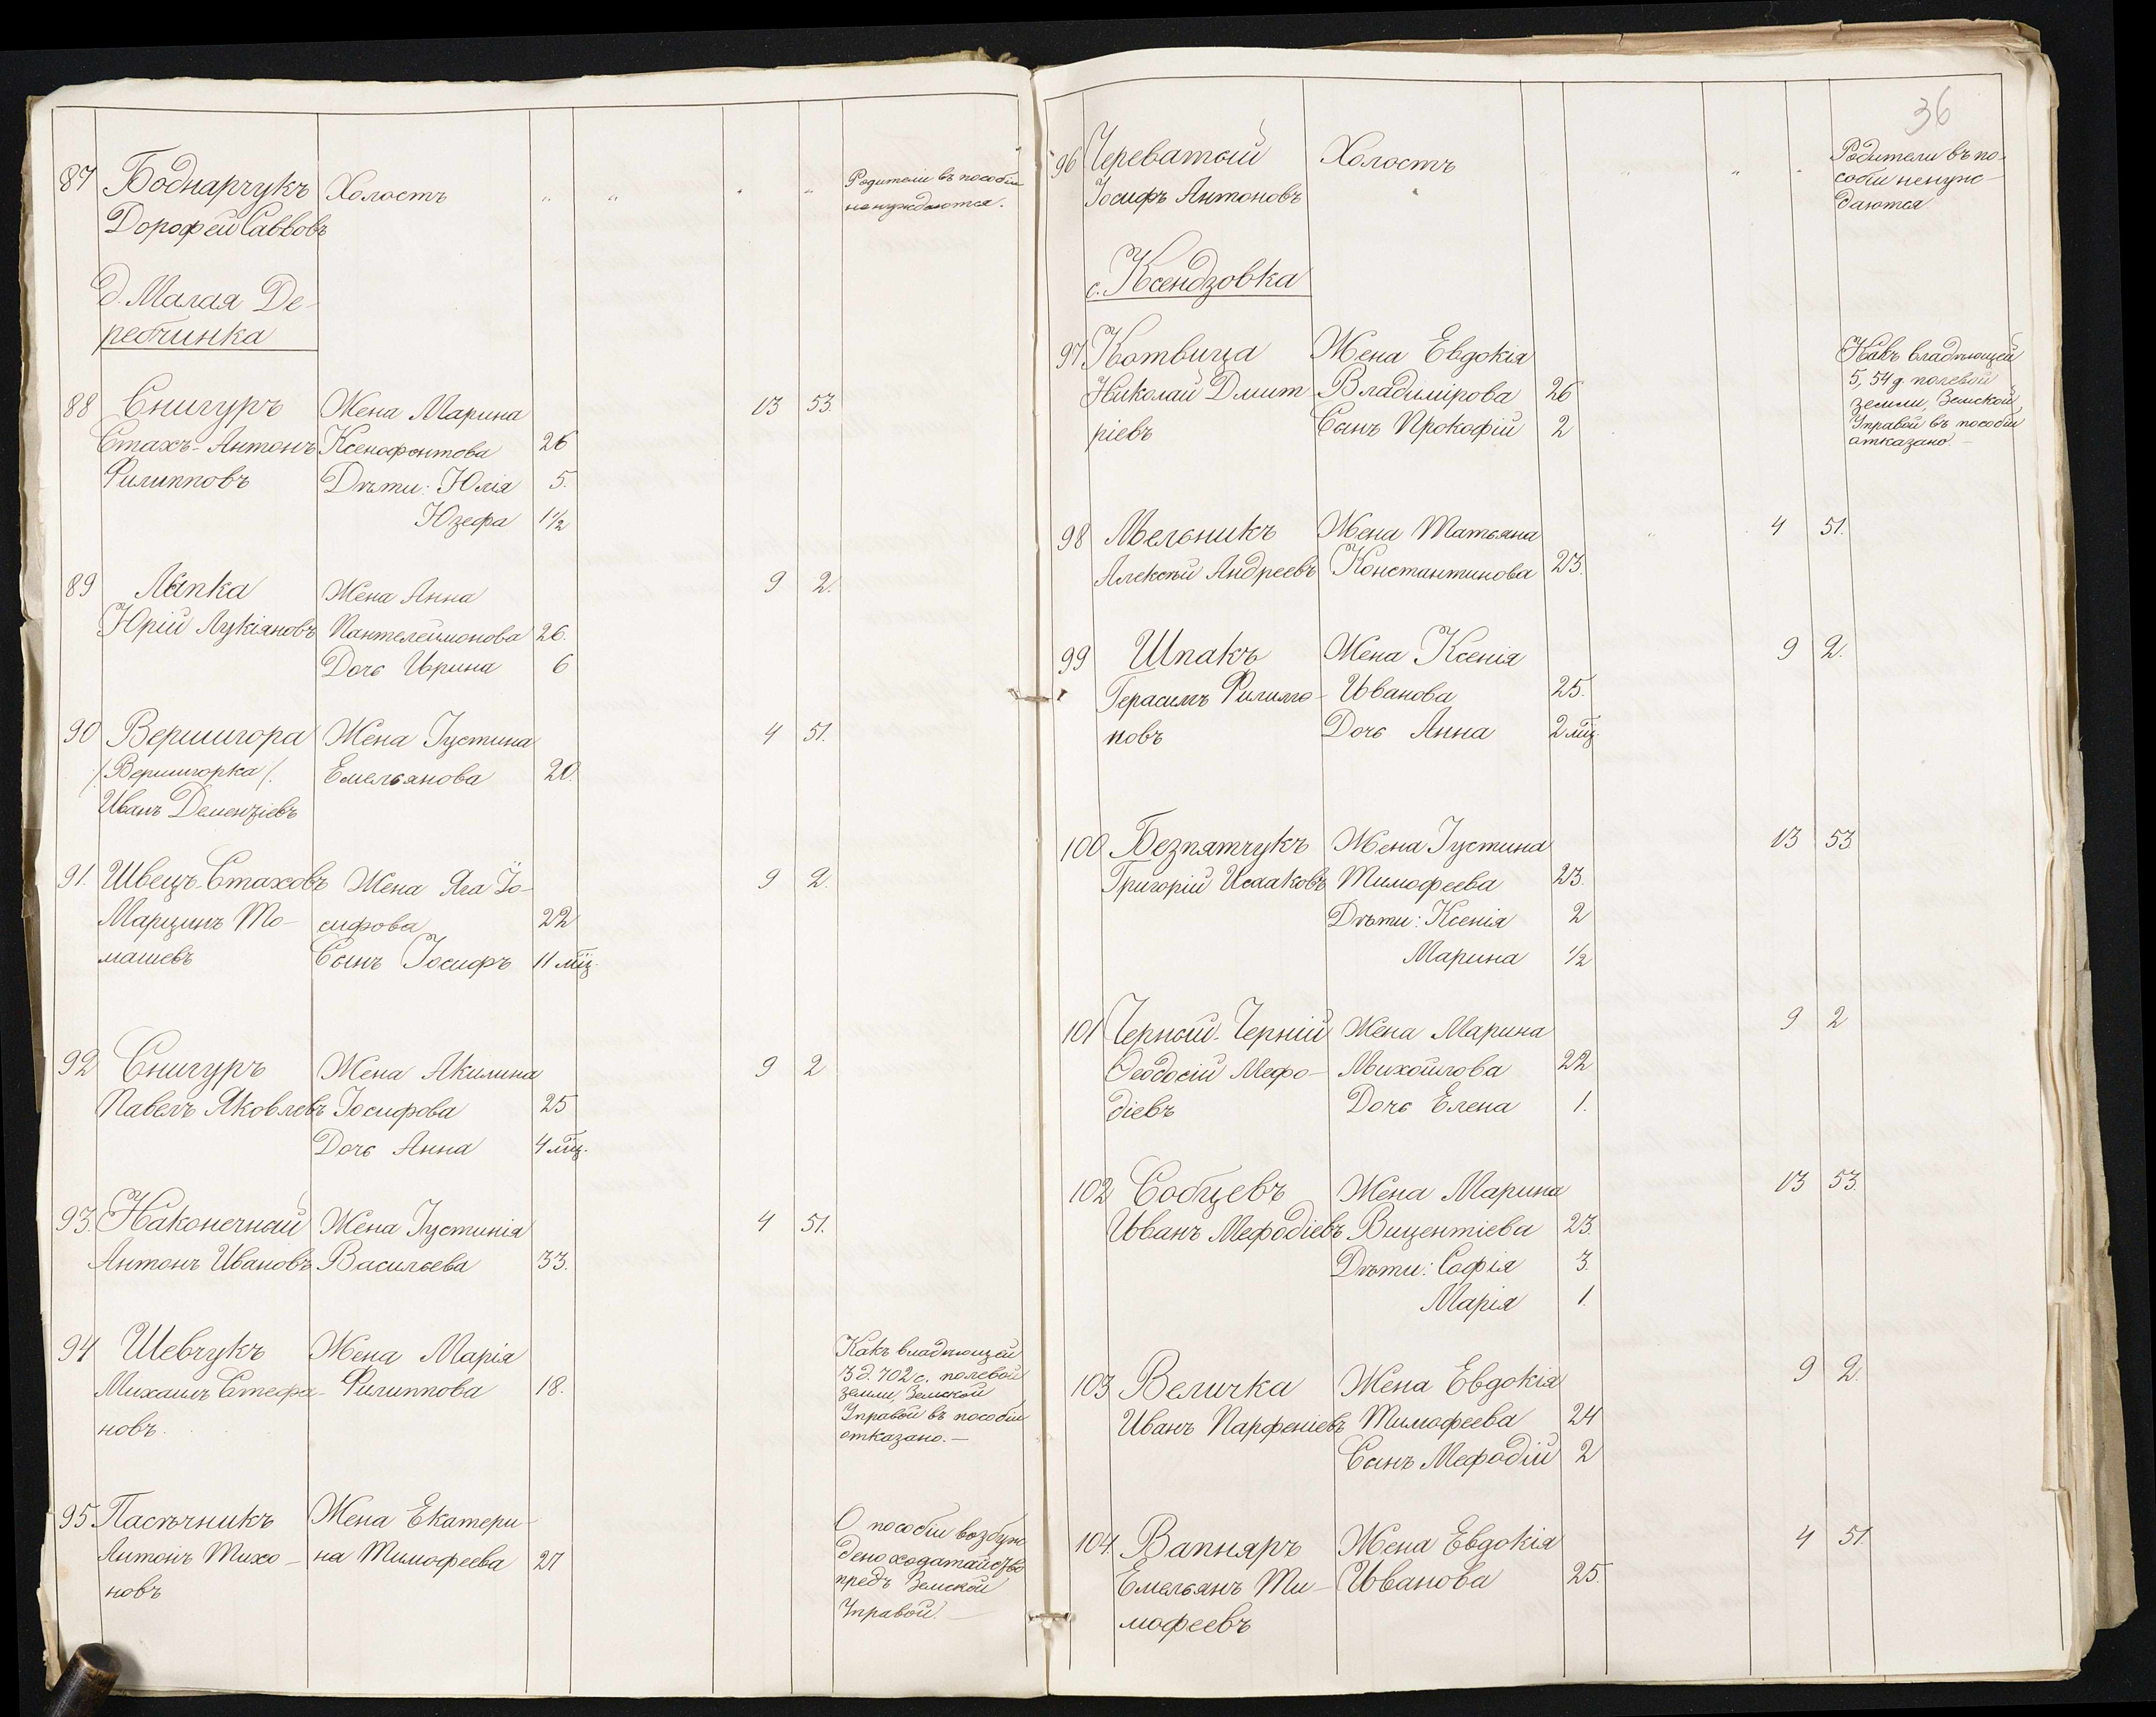 87 Боднарчукъ Холостъ „ „ „ „ Родители въ пособіи
Дорофей Саввовъ не нуждаются.
д. Малая Де-
ребчинка
88 Снигуръ Жена Марина 13 53.
Стахъ-Антонъ Ксенофонтова 26
Филипповъ Дѣти: Юлія 5.
Юзефа 1½
89 Липка Жена Анна 9 2.
Юрій Лукіановъ Пантелеймонова 26.
Дочь Ирина 6
90 Вершигора Жена Іустина 4 51.
/Вершигорка/. Емельянова 20.
Иванъ Деменгіевъ
91. Швецъ-Стаховъ Жена Яга Іо- 9 2.
Марцинъ То- сифова 22
машевъ Сынъ Іосифъ 11 мц.
92 Снигуръ Жена Акилина 9 2
Павелъ Яковлевъ Іосифова 25
Дочь Анна 4 мц.
93. Наконечный Жена Іустинія 4 51.
Антонъ Ивановъ Васильева 33.
94 Шевчукъ Жена Марія Какъ владѣющей
Михаилъ Стефа- Филиппова 18. 3 д. 702 с. полевой
новъ. земли, Земской
Управой въ пособіи
отказано. —
95 Пасѣчникъ Жена Екатери- О пособіи возбуж
Антонъ Тихо- на Тимофеева 27 дено ходатайство
новъ предъ Земской
Управой. —
36
96 Череватый Холостъ „ „ „ Родители въ по-
Іосифъ Антоновъ собіи ненуж-
даются.
с. Ксендзовка
97 Котвица Жена Евдокія Какъ владѣющей
Николай Дмит- Владимірова 26 5,54 д. полевой
ріевъ Сынъ Прокофій 2 земли, Земской
Управой въ пособіи
отказано. —
98 Мельникъ Жена Татьяна „ 4 51.
Алексѣй Андреевъ Константинова 23.
99 Шпакъ Жена Ксенія 9 2.
Герасимъ Филип- Иванова 25.
повъ Дочь Анна 2 мц.
100 Безпятчукъ Жена Іустина 13 53
Григорій Исааковъ Тимофеева 23.
Дѣти: Ксенія 2
Марина ½
101 Черный-Черній Жена Марина 9 2
Ѳеодосій Мефо- Михайлова 22
діевъ Дочь Елена 1.
102 Собцевъ Жена Марина 13 53.
Иванъ Мефодіевъ Вицентіева 23.
Дѣти: Софія 3.
Марія 1.
103 Величка Жена Евдокія 9 2.
Иванъ Парфеніевъ Тимофеева 24
Сынъ Мефодій 2
104. Вапняръ Жена Евдокія 4 51.
Емельянъ Ти- Иванова 25.
мофеевъ